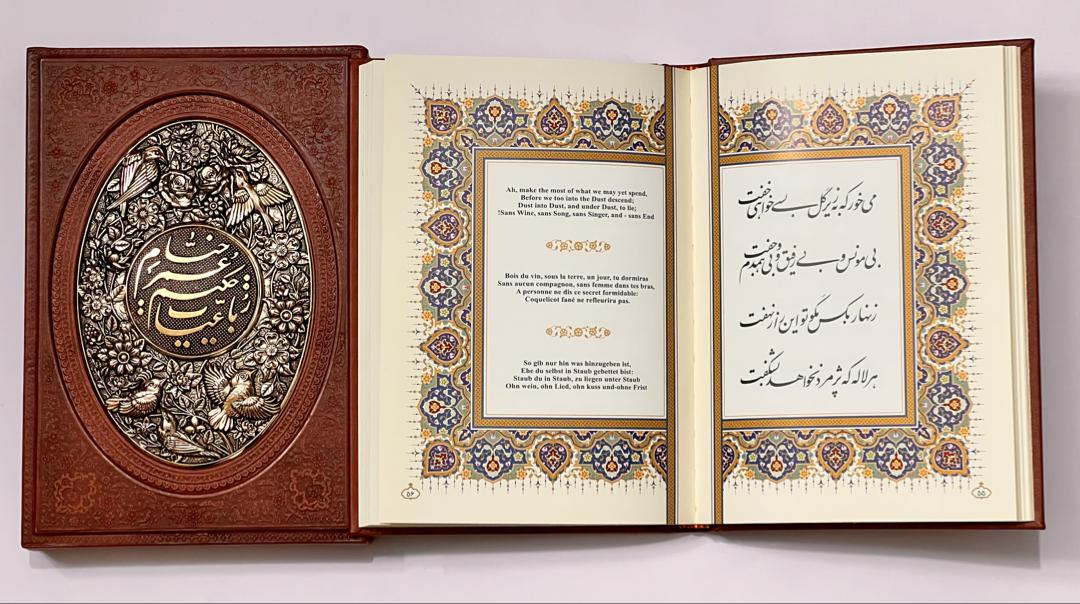 رباعیات حکیم عمر خیام
Ah, make the most of what we may yet spend,
Before we too into the Dust descend;
Dust into Dust, and under Dust, to lie;
!Sans Wine, sans Song, sans Singer, and - sans End
Bois du vin, sous la terre, un jour, tu dormiras
Sans aucun compagnon, sans femme dans tes bras,
A personne ne dis ce secret formidable:
Coquelicot fané ne refleurira pas.
So gib nur hin was hinzugeben ist,
Ehe du selbst in Staub gebettet bist:
Staub du in Staub, zu liegen unter Staub
Ohn wein, ohn Lied, ohn kuss und-ohne Frist
۵۶
می خور که بزیر گل بسی خواهی خفت
بی مونس و بی رفیق و بی همدم و جفت
زنهار بکس مگو تو این راز نهفت
هر لاله که پژمرد نخواهد بشکفت
۵۵